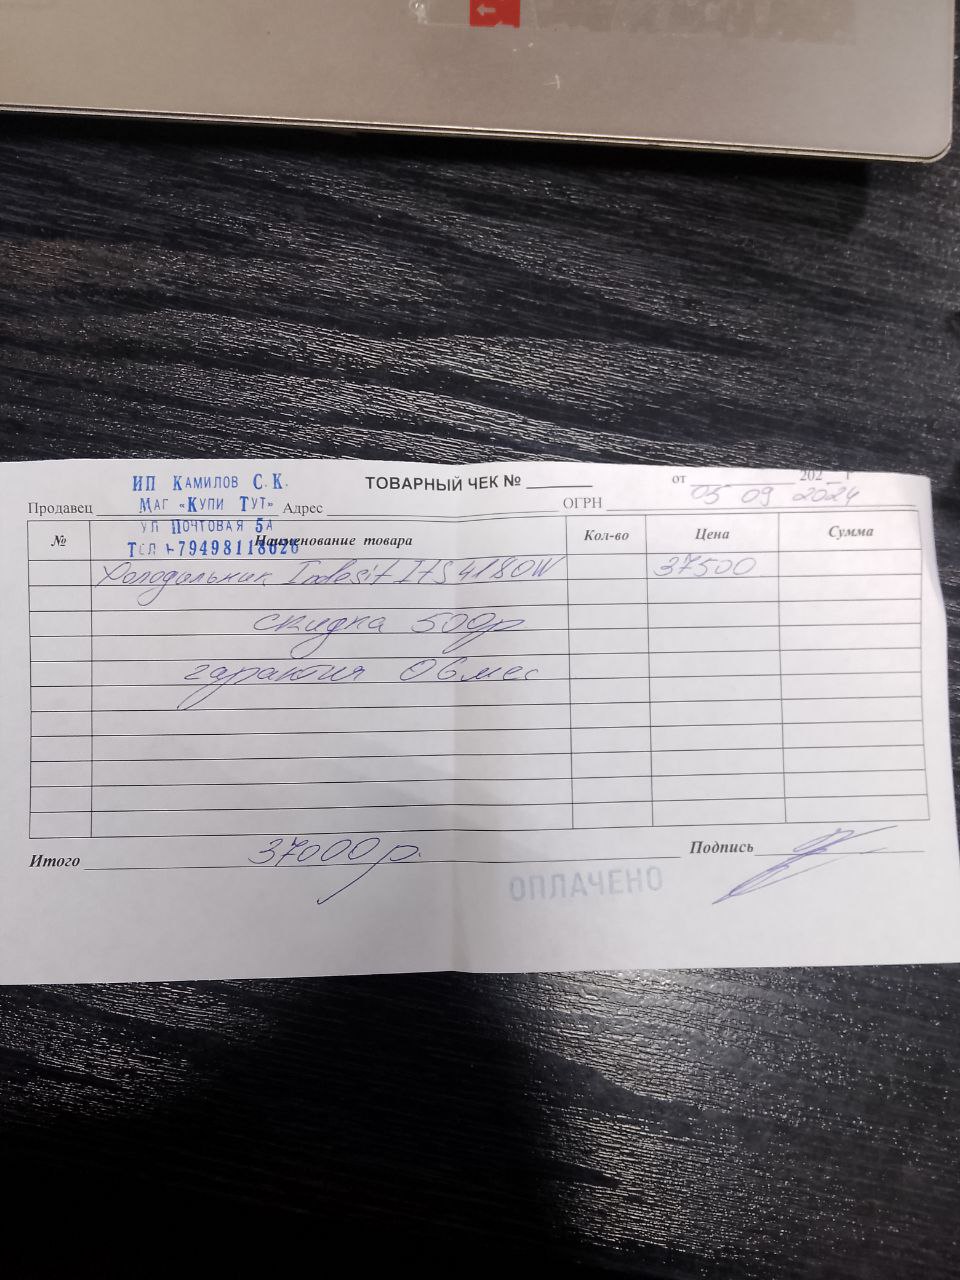 ИП КАМИЛОВ С.К.
ТОВАРНЫЙ ЧЕК № от 05 09 2024 202 г
Продавец МАГ «КУПИ ТУТ» Адрес ОГРН
УЛ ПОЧТОВАЯ 5А
ТЕЛ +79498118626
№ Наименование товара Кол-во Цена Сумма
Холодильник Indesit ITS 4180W 37500
скидка 500р
гарантия 06 мес
Итого 37000 р. Подпись
ОПЛАЧЕНО